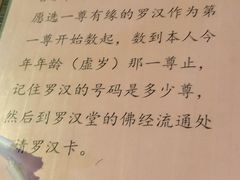 愿选一尊有缘的罗汉作为第
一尊开始数起，数到本人今
年年龄（虚岁）那一尊止，
记住罗汉的号码是多少尊，
然后到罗汉堂的佛经流通处
请罗汉卡。